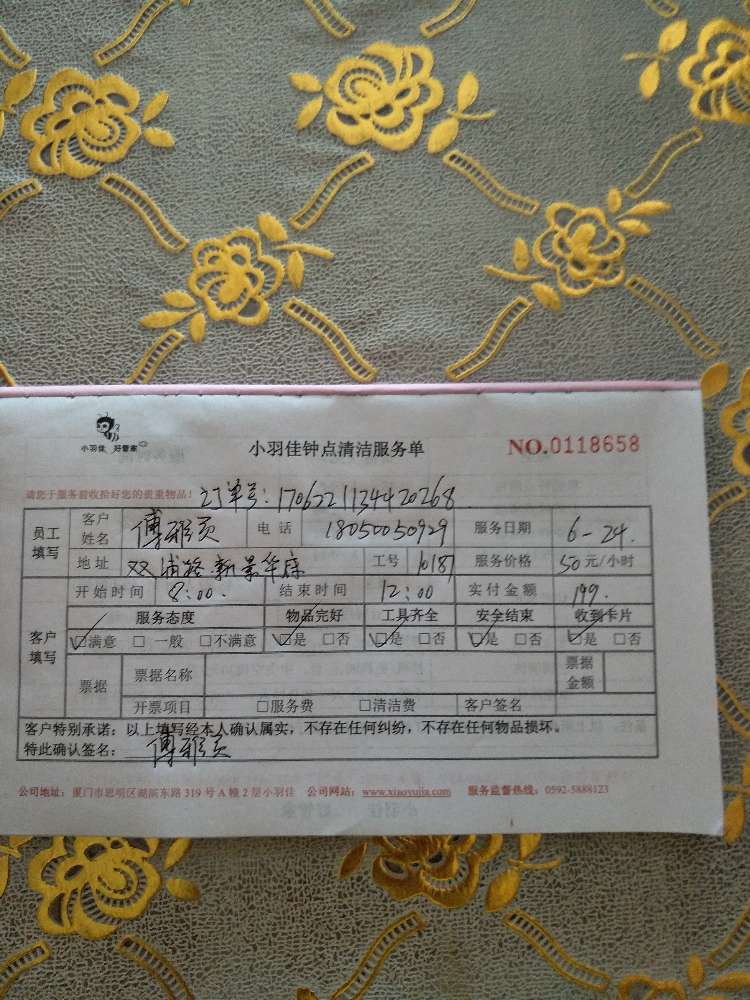 小羽佳 好管家
小羽佳钟点清洁服务单
NO.0118658
请您于服务前收拾好您的贵重物品！ 订单号：170622113442 0268
员工填写 客户姓名 傅雅 电话 18050050929 服务日期 6-24.
地址 双浦路.新景华庭 工号 10187 服务价格 50元/小时
开始时间 8:00. 结束时间 12:00 实付金额 199.
客户填写 服务态度 物品完好 工具齐全 安全结束 收到卡片
☑满意 □一般 □不满意 ☑是 □否 ☑是 □否 ☑是 □否 ☑是 □否
票据 票据名称 票据金额
开票项目 □服务费 □清洁费 客户签名
客户特别承诺：以上填写经本人确认属实，不存在任何纠纷，不存在任何物品损坏。
特此确认签名： 傅雅
公司地址：厦门市思明区湖滨东路 319 号 A 幢 2 层小羽佳 公司网站：www.xiaoyujia.com 服务监督热线：0592-5888123